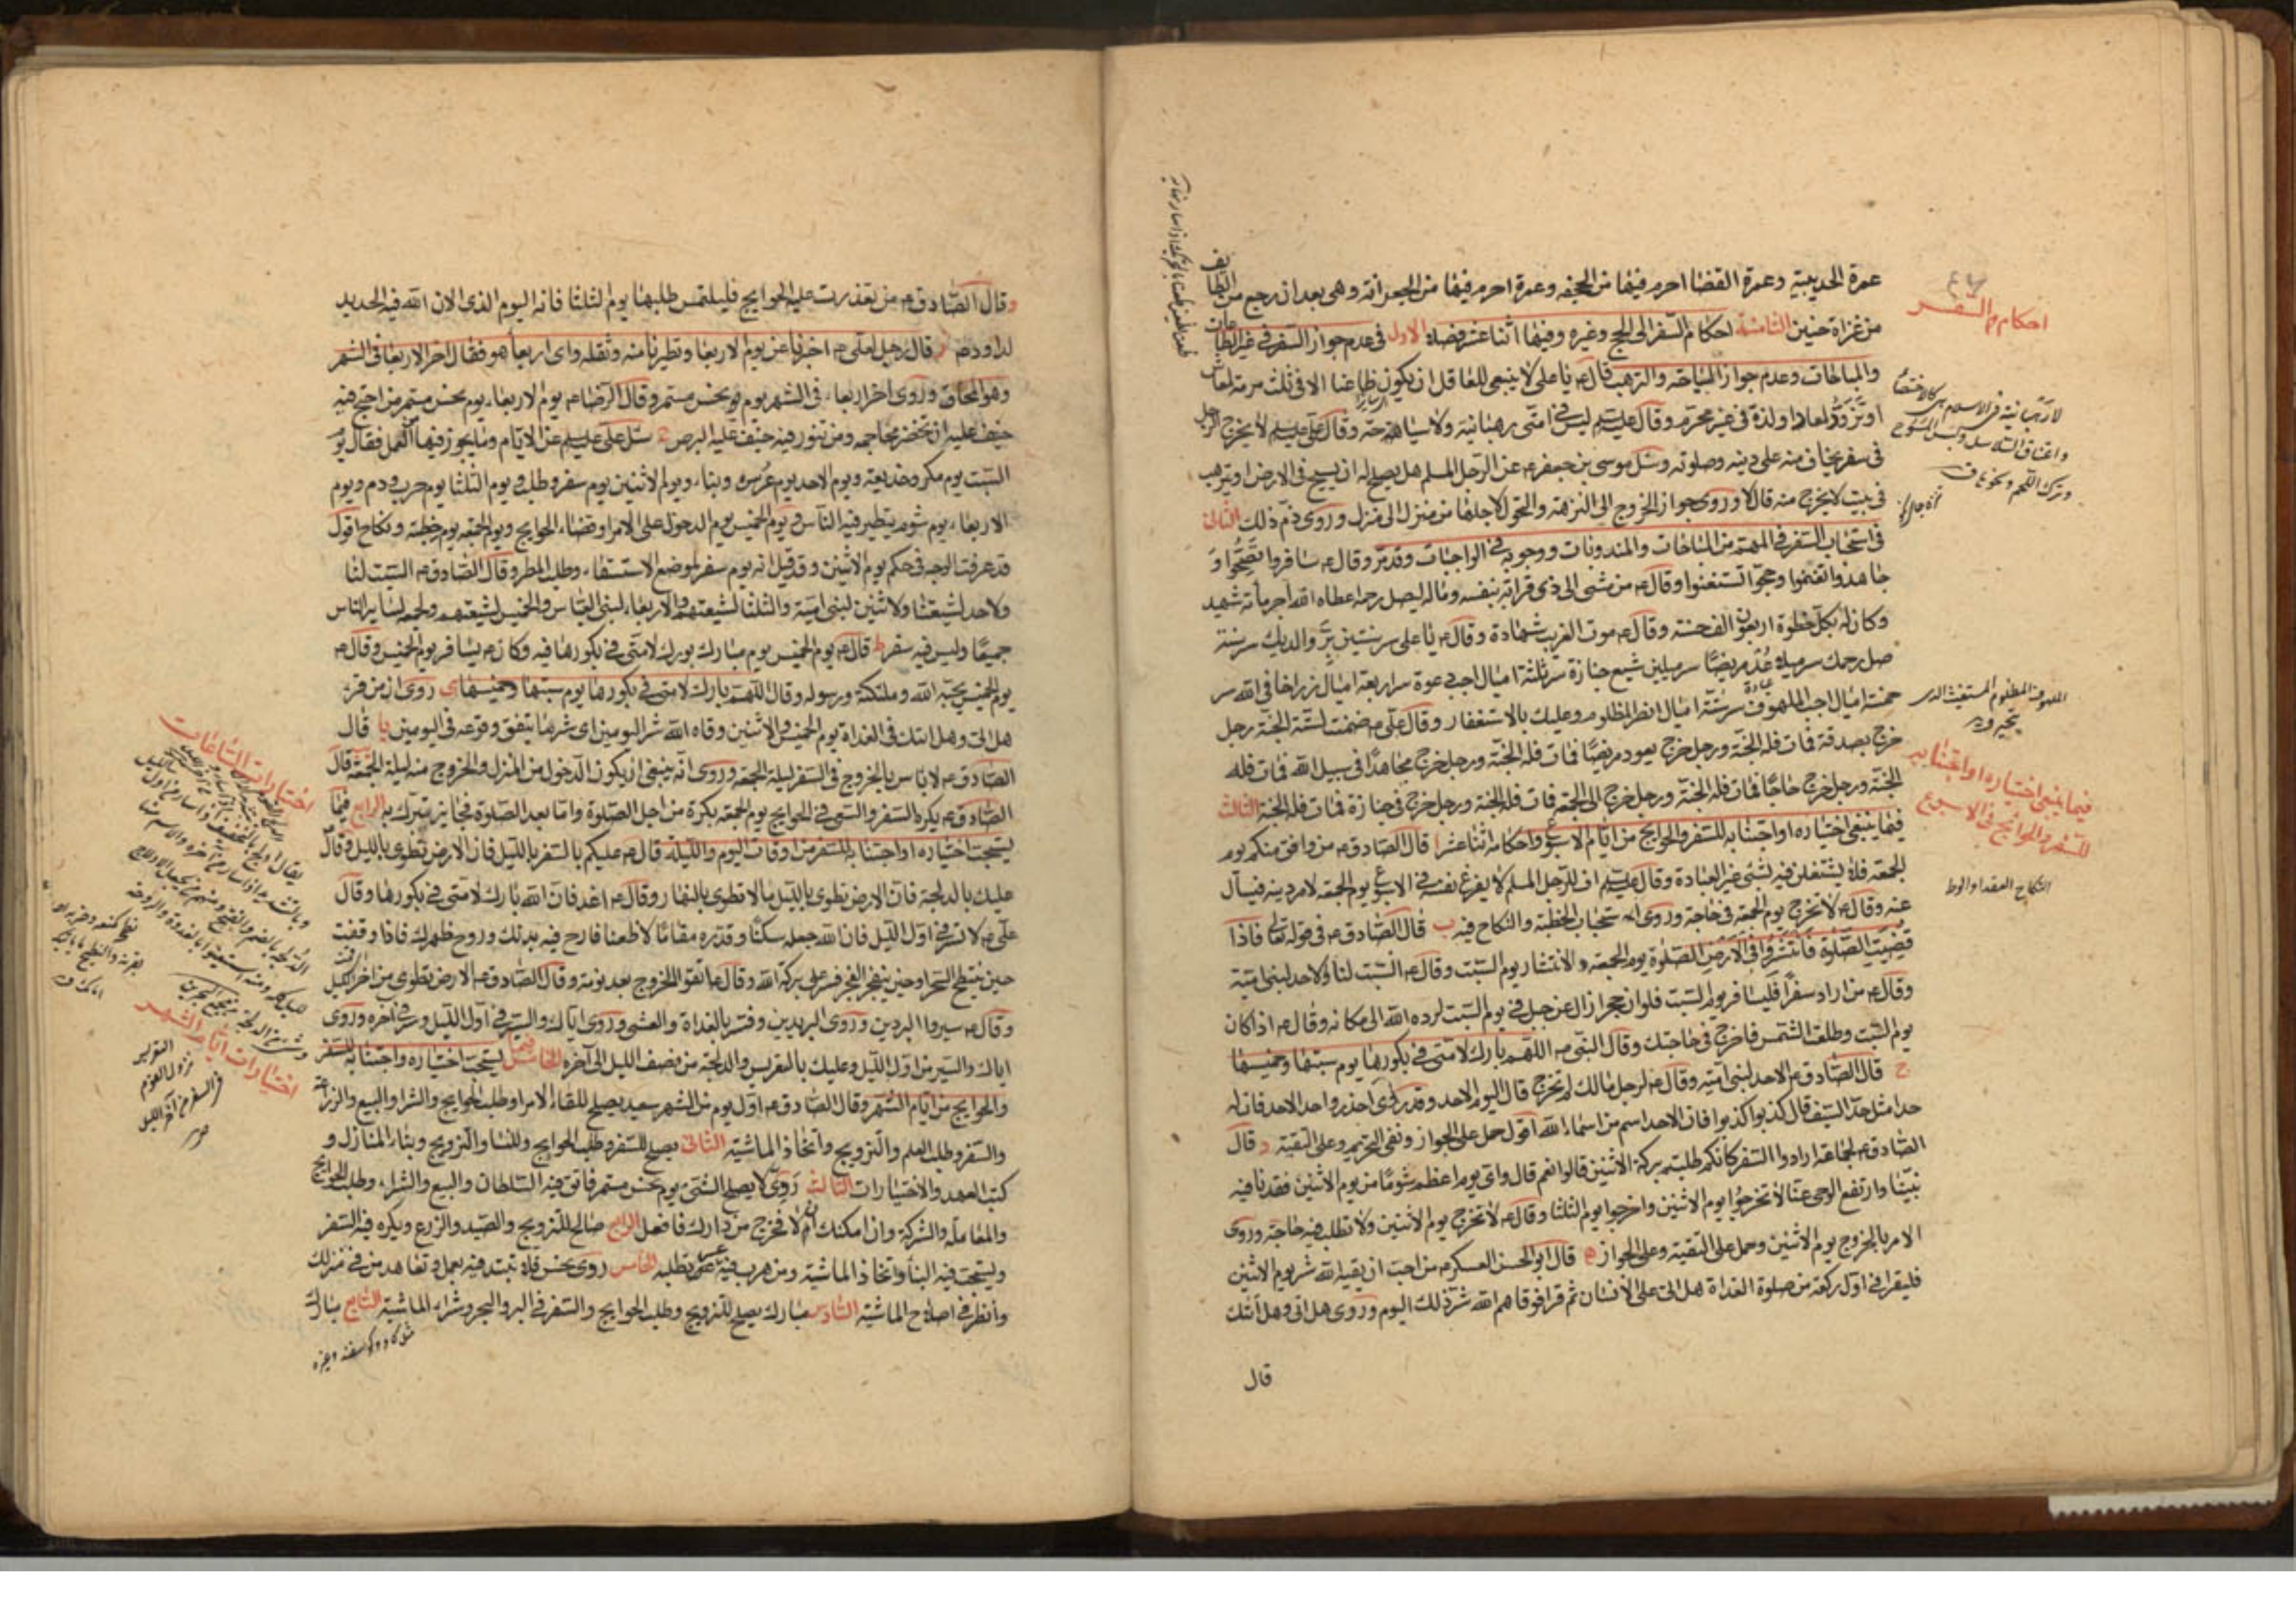 عمرة الحديبية وعمرة القضا احرم فيها من الجحفه وعمرة احرم فيها من الجعرانة وهى بعد ان رجع من الطايف
من غزاة حنين الثامنة احكام السفر الى الحج وغيره وفيها اثنا عشر فصلا الاول فى عدم جواز السفر فى غير الطاعات
والمباحات وعدم جواز السياحة والترهب قال ع يا على لا ينبغى للعاقل ان يكون ظاعنا الا فى ثلث مرمة لمعاش
او تزود لمعاد او لذة فى غير محرم وقال عليلسلم ليس فى امتى رهبانية ولا سياحة وقال على عليلسلم لا يخرج الرجل
فى سفر يخاف منه على دينه وصلوته وسئل موسى بن جعفر ع عن الرجل المسلم هل يصلح له ان يسيح فى الارض او يترهب
فى بيت لا يخرج منه قال لا وروى جواز الخروج الى النزهة والتحول لاجلها من منزل الى منزل وروى ذم ذلك الثانى
فى استحباب السفر فى المهم من المباحات والمندوبات ووجوبه فى الواجبات وقد مر وقال ع سافروا تصحوا و
جاهدوا تغنموا وحجوا تستغنوا وقال ع من مشى الى ذى قرابة بنفسه وماله ليصل رحمه اعطاه الله اجر مأة شهيد
وكان له بكل خطوة اربعون الف حسنة وقال ع موت الغريب شهادة وقال ع يا على سر سنتين بر والديك سر سنة
صل رحمك سر ميلا عد مريضا سر ميلين شيع جنازة سر ثلثة اميال اجب دعوة سر اربعة اميال زر اخا فى الله سر
خمسة اميال اجب الملهوف سر ستة اميال انصر المظلوم وعليك بالاستغفار وقال على ع ضمنت لستة الجنة رجل
خرج بصدقة فمات فله الجنة ورجل خرج يعود مريضا فمات فله الجنة ورجل خرج مجاهدا فى سبيل الله فمات فله
الجنة ورجل خرج حاجا فمات فله الجنة ورجل خرج الى الجمعة فمات فله الجنة ورجل خرج فى جنازة فمات فله الجنة الثالث
فيما ينبغى اختياره او اجتنابه للسفر والحوايج من ايام الاسبوع واحكامه اثنا عشر ا قال الصادق ع من وافق منكم يوم
الجمعه فلا يشتغلن فيه بشئ غير العبادة وقال عليلسلم اف للرجل المسلم لا يفرغ نفسه فى الاسبوع يوم الجمعه لامر دينه فيسأل
عنه وقال ع لا تخرج يوم الجمعة فى حاجة وروى استحباب الخطبة والنكاح فيه ب قال الصادق ع فى قوله تعالى فاذا
قضيت الصلوة فانتشروا فى الارض الصلوة يوم الجمعة والانتشار يوم السبت وقال ع السبت لنا والاحد لبنى امية
وقال ع من اراد سفرا فليسافر يوم السبت فلو ان حجرا زال عن جبل فى يوم السبت لرده الله الى مكانه وقال ع اذا كان
يوم السبت وطلعت الشمس فاخرج فى حاجتك وقال النبى ص اللهم بارك لامتى فى بكورها يوم سبتها وخميسها
ج قال الصادق ع الاحد لبنى امية وقال ع لرجل مالك لم تخرج قال اليوم الاحد وقد روى احذروا حد الاحد فان له
حدا مثل حد السيف قال كذبوا كذبوا فان الاحد اسم من اسماء الله اقول حمل على الجواز ونفى التحريم وعلى التقية د قال
الصادق ع لجماعة ارادوا السفر كانكم طلبتم بركة الاثنين قالوا نعم قال واى يوم اعظم شوما من يوم الاثنين فقدنا فيه
نبينا وارتفع الوحى عنا لا تخرجوا يوم الاثنين واخرجوا يوم الثلثا وقال ع لا تخرج يوم الاثنين ولا تطلب فيه حاجة وروى
الامر بالخروج يوم الاثنين وحمل على التقية وعلى الجواز ه قال ابو الحسن العسكرى ع من احب ان يقيه الله شر يوم الاثنين
فليقرأ فى اول ركعة من صلوة الغداة هل اتى على الانسان ثم قرا فوقاهم الله شر ذلك اليوم وروى هل اتى وهل اتيك
قال
احكام السفر
لا رهبانية فى الاسلام هى كالاختصاء
واعتناق السلاسل ولبس المسوح
وترك اللحم ونحوها ق
الملهوف المظلوم المستغيث الذى
فيما ينبغى اختياره او اجتنابه
للسفر والحوايج فى الاسبوع
النكاح العقد او الوط
وقال الصادق ع من تعذرت عليه الحوايج فليلتمس طلبها يوم الثلثا فانه اليوم الذى الان الله فيه الحديد
لداود ع ز قال رجل لعلى ع اخبرنا عن يوم الاربعا وتطيرنا منه وثقله واى اربعا هو فقال اخر الاربعا فى الشهر
وهو المحاق وروى اخر اربعاء فى الشهر يوم نحس مستمر وقال الرضا ع يوم الاربعاء يوم نحس مستمر من احتجم فيه
خيف عليه ان تخضر محاجمه ومن تنور فيه خيف عليه البرص ح سئل على عليلسلم عن الايام وما يجوز فيها من العمل فقال يوم
السبت يوم مكر وخديعة ويوم الاحد يوم غرس وبناء ويوم الاثنين يوم سفر وطلب ويوم الثلثا يوم حرب ودم ويوم
الاربعاء يوم شوم يتطير فيه الناس ويوم الخميس يوم الدخول على الامرا وقضاء الحوايج ويوم الجمعه يوم خطبة ونكاح اقول
قد عرفت الوجه فى حكم يوم الاثنين وقد قيل انه يوم سفر لموضع الاستسقاء وطلب المطر وقال الصادق ع السبت لنا
والاحد لشيعتنا والاثنين لبنى امية والثلثا لشيعتهم والاربعاء لبنى العباس والخميس لشيعتهم والجمعه لساير الناس
جميعا وليس فيه سفر ط قال ع يوم الخميس يوم مبارك بورك لامتى فى بكورها فيه وكان ع يسافر يوم الخميس وقال ع
يوم الخميس يحبه الله وملئكته ورسوله وقال اللهم بارك لامتى فى بكورها يوم سبتها وخميسها ى روى ان من قرء
هل اتى وهل اتيك فى الغداة يوم الخميس والاثنين وقاه الله شر اليومين اى شر ما يتفق وقوعه فى اليومين يا قال
الصادق ع لا باس بالخروج فى السفر ليلة الجمعه وروى انه ينبغى ان يكون الدخول من المنزل والخروج منه ليلة الجمعة قال
الصادق ع يكره السفر والسعى فى الحوايج يوم الجمعه بكرة من اجل الصلوة واما بعد الصلوة فجايز يتبرك به الرابع فيما
يستحب اختياره او اجتنابه للسفر من اوقات اليوم والليلة قال ع عليكم بالسفر بالليل فان الارض تطوى بالليل وقال
عليك بالدلجة فان الارض تطوى بالليل ما لا تطوى بالنهار وقال ع اغد فان الله بارك لامتى فى بكورها وقال
على ع لا تسر فى اول الليل فان الله جعله سكنا وقدره مقاما لا ظعنا فارح فيه بدنك وروح ظهرك فاذا وقفت
حين ينبطح السحر او حين ينفجر الفجر فسر على بركة الله وقال ع اتقوا الخروج بعد نومة وقال الصادق ع الارض تطوى من اخر الليل
وقال ع سيروا البردين وروى البريدين وفسر بالغداة والعشى وروى اياك والسير فى اول الليل وسر فى آخره وروى
اياك والسير من اول الليل وعليك بالتعريس والدلجة من نصف الليل الى آخره الخامس فيما يستحب اختياره واجتنابه للسفر
والحوايج من ايام الشهر وقال الصادق ع اول يوم من الشهر سعيد يصلح للقاء الامرا وطلب الحوايج والشرا والبيع والزراعة
والسفر وطلب العلم والتزويج واتخاذ الماشية الثانى يصلح للسفر وطلب الحوايج وللنسا والتزويج وبناء المنازل و
كتب العهد والاختيارات الثالث روى لا يصلح لشئ يوم نحس مستمر فاتق فيه السلطان والبيع والشراء وطلب الحوايج
والمعاملة والشركة وان امكنك ان لا تخرج من دارك فافعل الرابع صالح للتزويج والصيد والزرع ويكره فيه السفر
ويستحب فيه البنا واتخاذ الماشية ومن هرب فيه عسر تطلبه الخامس روى نحس فلا تبتد فيه بعمل وتعاهد من فى منزلك
وانظر فى اصلاح الماشية السادس مبارك يصلح للتزويج وطلب الحوايج والسفر فى البر والبحر وشراء الماشية السابع مبارك
اختيارات الساعات
اختيارات ايام الشهر
التعريس
نزول القوم
فى السفر من آخر الليل